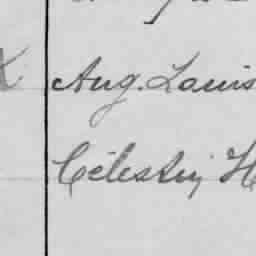 Aug. Louis
Célestin H